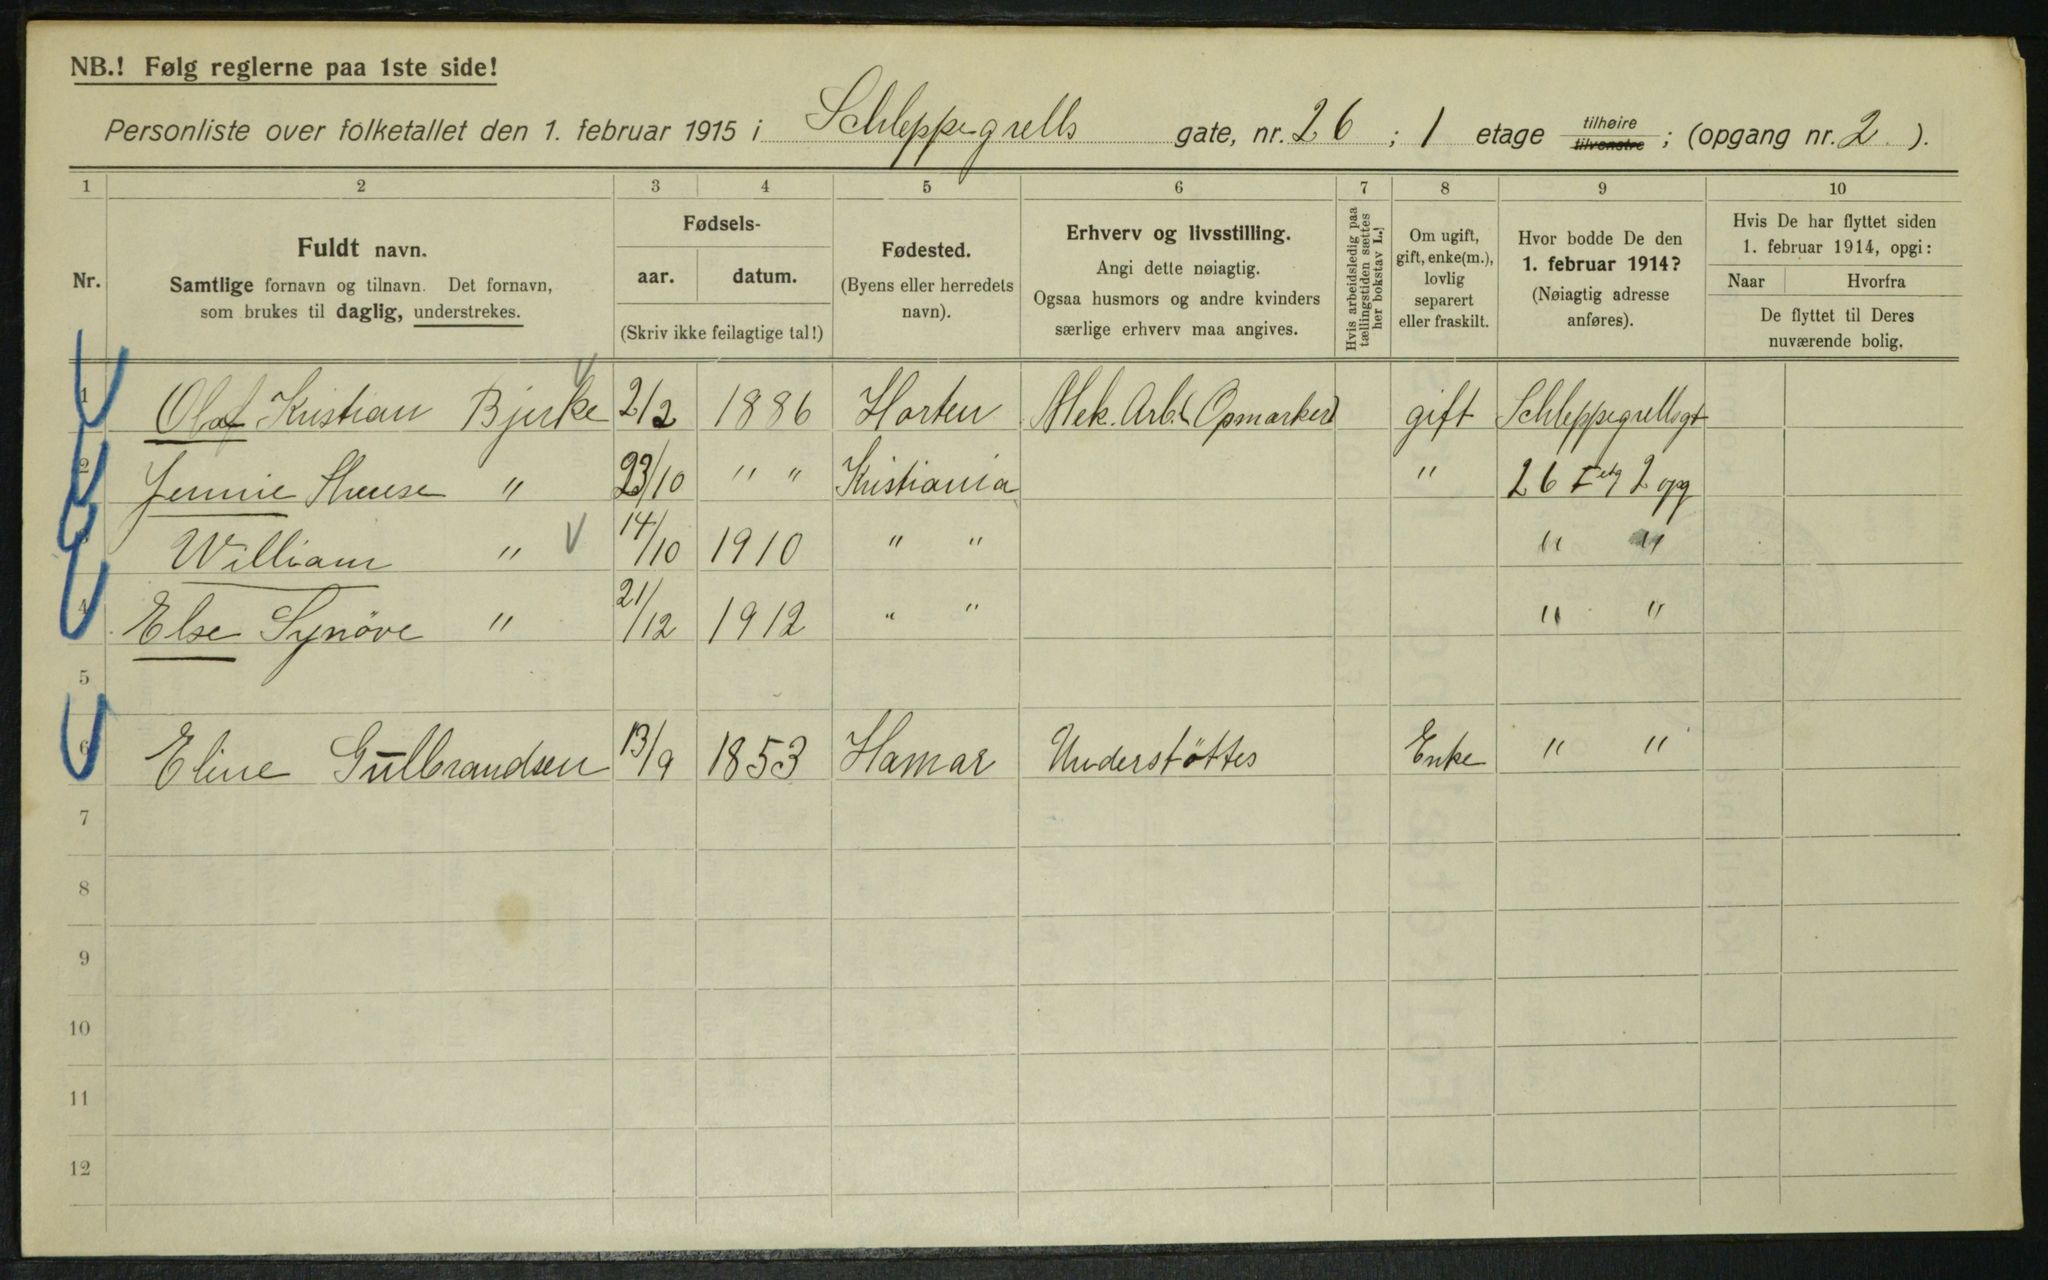 NB.! Følg reglerne paa 1ste side!
Personliste over folketallet den 1. februar 1915 i Schleppegrells gate, nr. 26 ; 1 etage tilhøire tilvenstre ; (opgang nr. 2 ).
1 2 3 4 5 6 7 8 9 10
Nr.
Fuldt navn.
Samtlige fornavn og tilnavn. Det fornavn,
som brukes til daglig, understrekes.
Fødsels-
aar. datum.
(Skriv ikke feilagtige tal!)
Fødested.
(Byens eller herredets
navn).
Erhverv og livsstilling.
Angi dette nøiagtig.
Ogsaa husmors og andre kvinders
særlige erhverv maa angives.
Hvis arbeidsledig paa
tællingstiden sættes
her bokstav L.)
Om ugift,
gift, enke(m.),
lovlig
separert
eller fraskilt.
Hvor bodde De den
1. februar 1914?
(Nøiagtig adresse
anføres).
Hvis De har flyttet siden
1. februar 1914, opgi:
Naar Hvorfra
De flyttet til Deres
nuværende bolig.
1 Olaf Kristian Bjerke 2/2 1886 Horten Mek. Arb. (Opmerker) gift Schleppegrellsgt
2 Jennie " 23/10 " " Kristiania " 26 I etg 2 opg
3 William " 14/10 1910 " " " "
4 Else Synöve " 21/12 1912 " " " "
5
6 Eline Gulbrandsen 13/9 1853 Hamar Understöttes Enke " "
7
8
9
10
11
12